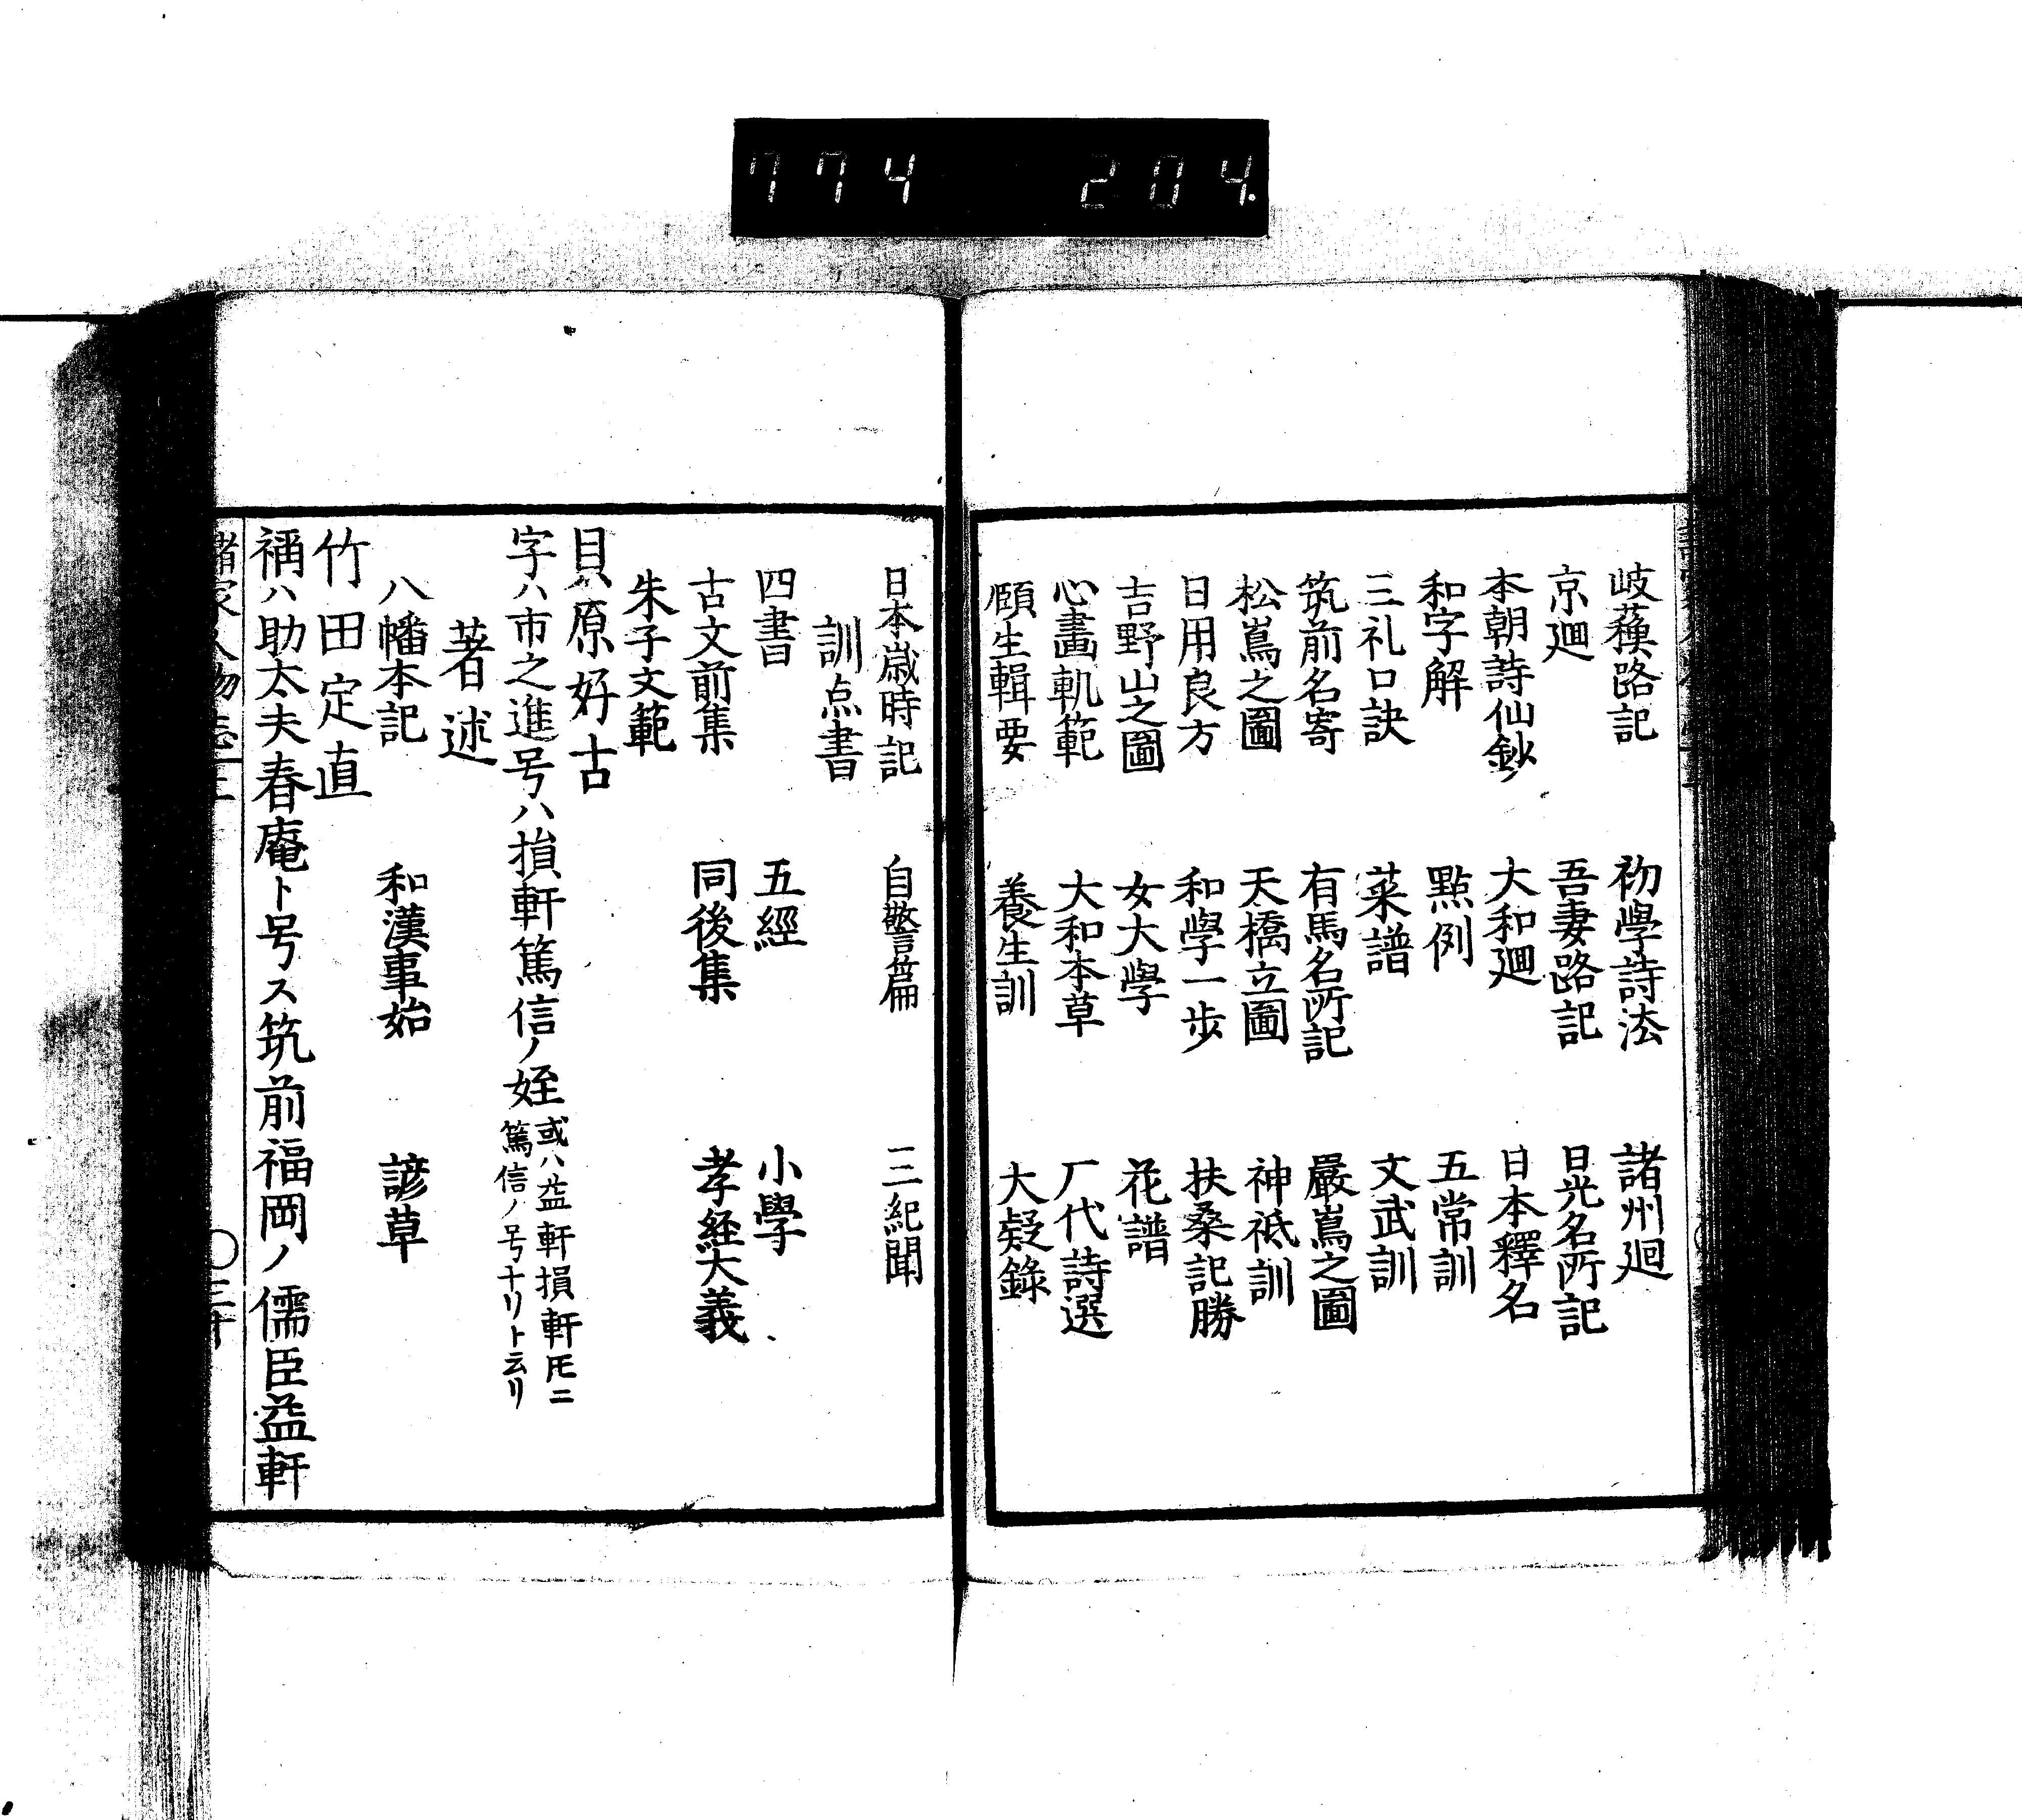 774 204.
岐蘓路記 初學詩法 諸州廻
京廻 吾妻路記 日光名所記
本朝詩仙鈔 大和廻 日本釋名
和字解 點例 五常訓
三礼口訣 菜譜 文武訓
筑前名寄 有馬名所記 嚴嶌之圖
松嶌之圖 天橋立圖 神祇訓
日用良方 和學一步 扶桑記勝
吉野山之圖 女大學 花譜
心畫軌範 大和本草 厂代詩選
頤生輯要 養生訓 大疑錄
日本歳時記 自警篇 三紀聞
訓点書目
四書 五經 小學
古文前集 同後集 孝経大義
朱子文範
貝原好古
字ハ市之進号ハ損軒篤信ノ姪 或ハ益軒損軒㡳ニ
篤信ノ号ナリト云リ
著述
八幡本記 和漢事始 諺草
竹田定直
稱ハ助太夫春庵ト号ス筑前福岡ノ儒臣益軒
諸家人物志